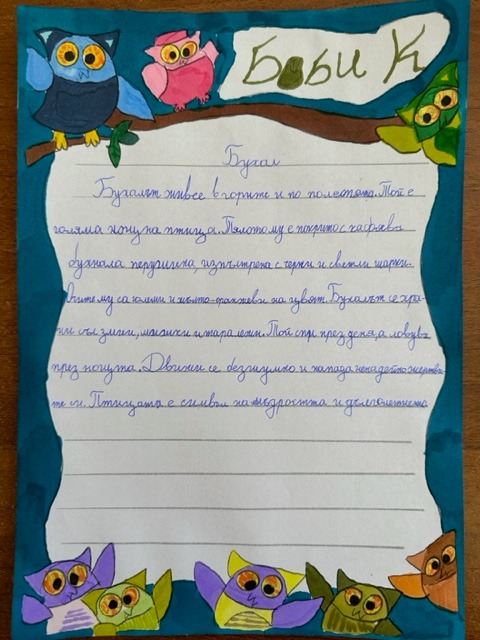 Боби К
Бухал
Бухалът живее в горите и по полетата. Той е
голяма нощна птица. Тялото му е покрито с кафява
бухнала перушина, изпъстрена с черни и светли шарки.
Очите му са големи и жълто-оранжеви на цвят. Бухалът се хра-
ни със змии, мишки и таралежи. Той спи през деня, а ловува
през нощта. Движи се безшумно и напада ненадейно жертви-
те си. Птицата е символ на мъдростта и дълголетието.